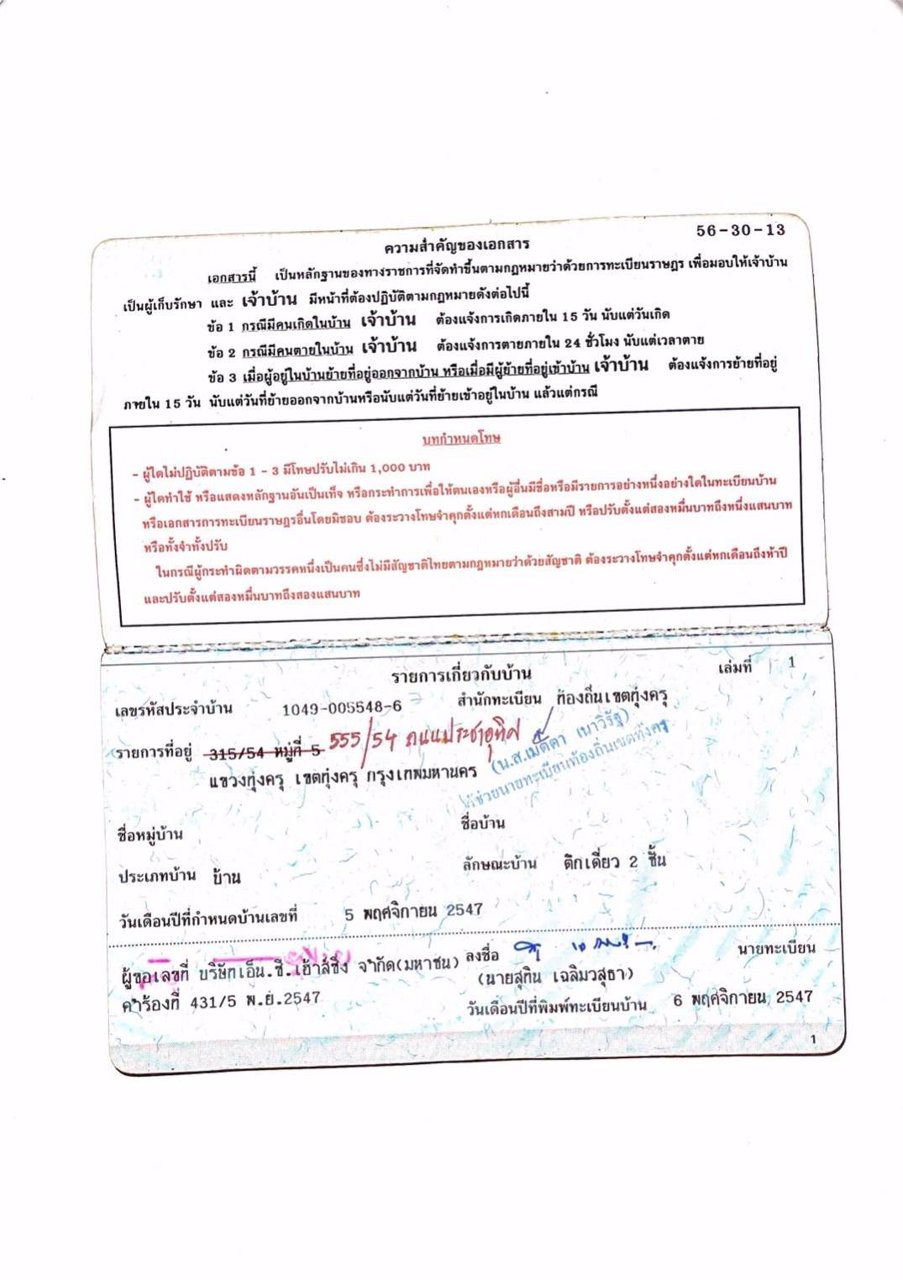 56-30-13
ความสำคัญของเอกสาร
เอกสารนี้ เป็นหลักฐานของทางราชการที่จัดทำขึ้นตามกฎหมายว่าด้วยการทะเบียนราษฎร เพื่อมอบให้เจ้าบ้าน
เป็นผู้เก็บรักษา และ เจ้าบ้าน มีหน้าที่ต้องปฏิบัติตามกฎหมายดังต่อไปนี้
ข้อ 1 กรณีมีคนเกิดในบ้าน เจ้าบ้าน ต้องแจ้งการเกิดภายใน 15 วัน นับแต่วันเกิด
ข้อ 2 กรณีมีคนตายในบ้าน เจ้าบ้าน ต้องแจ้งการตายภายใน 24 ชั่วโมง นับแต่เวลาตาย
ข้อ 3 เมื่อผู้อยู่ในบ้านย้ายที่อยู่ออกจากบ้าน หรือเมื่อมีผู้ย้ายที่อยู่เข้าบ้าน เจ้าบ้าน ต้องแจ้งการย้ายที่อยู่
ภายใน 15 วัน นับแต่วันที่ย้ายออกจากบ้านหรือนับแต่วันที่ย้ายเข้าอยู่ในบ้าน แล้วแต่กรณี
บทกำหนดโทษ
- ผู้ใดไม่ปฏิบัติตามข้อ 1 - 3 มีโทษปรับไม่เกิน 1,000 บาท
- ผู้ใดทำใช้ หรือแสดงหลักฐานอันเป็นเท็จ หรือกระทำการเพื่อให้ตนเองหรือผู้อื่นมีชื่อหรือมีรายการอย่างหนึ่งอย่างใดในทะเบียนบ้าน
หรือเอกสารการทะเบียนราษฎรอื่นโดยมิชอบ ต้องระวางโทษจำคุกตั้งแต่หกเดือนถึงสามปี หรือปรับตั้งแต่สองหมื่นบาทถึงหนึ่งแสนบาท
หรือทั้งจำทั้งปรับ
ในกรณีผู้กระทำผิดตามวรรคหนึ่งเป็นคนซึ่งไม่มีสัญชาติไทยตามกฎหมายว่าด้วยสัญชาติ ต้องระวางโทษจำคุกตั้งแต่หกเดือนถึงห้าปี
และปรับตั้งแต่สองหมื่นบาทถึงสองแสนบาท
รายการเกี่ยวกับบ้าน เล่มที่ 1
เลขรหัสประจำบ้าน 1049-005548-6 สำนักทะเบียน ท้องถิ่นเขตทุ่งครุ
รายการที่อยู่ 315/54 หมู่ที่ 5 555/54 ถนนประชาอุทิศ
แขวงทุ่งครุ เขตทุ่งครุ กรุงเทพมหานคร
ผู้ช่วยนายทะเบียนท้องถิ่นเขตทุ่งครุ
ชื่อหมู่บ้าน ชื่อบ้าน
ประเภทบ้าน บ้าน ลักษณะบ้าน ตึกเดี่ยว 2 ชั้น
วันเดือนปีที่กำหนดบ้านเลขที่ 5 พฤศจิกายน 2547
ผู้ขอเลขที่ บริษัทเอ็น.ซี.เฮ้าส์ซิ่ง จำกัด(มหาชน) ลงชื่อ นายทะเบียน
(นายสุทิน เฉลิมวสุธา)
คำร้องที่ 431/5 พ.ย.2547
วันเดือนปีที่พิมพ์ทะเบียนบ้าน 6 พฤศจิกายน 2547
1